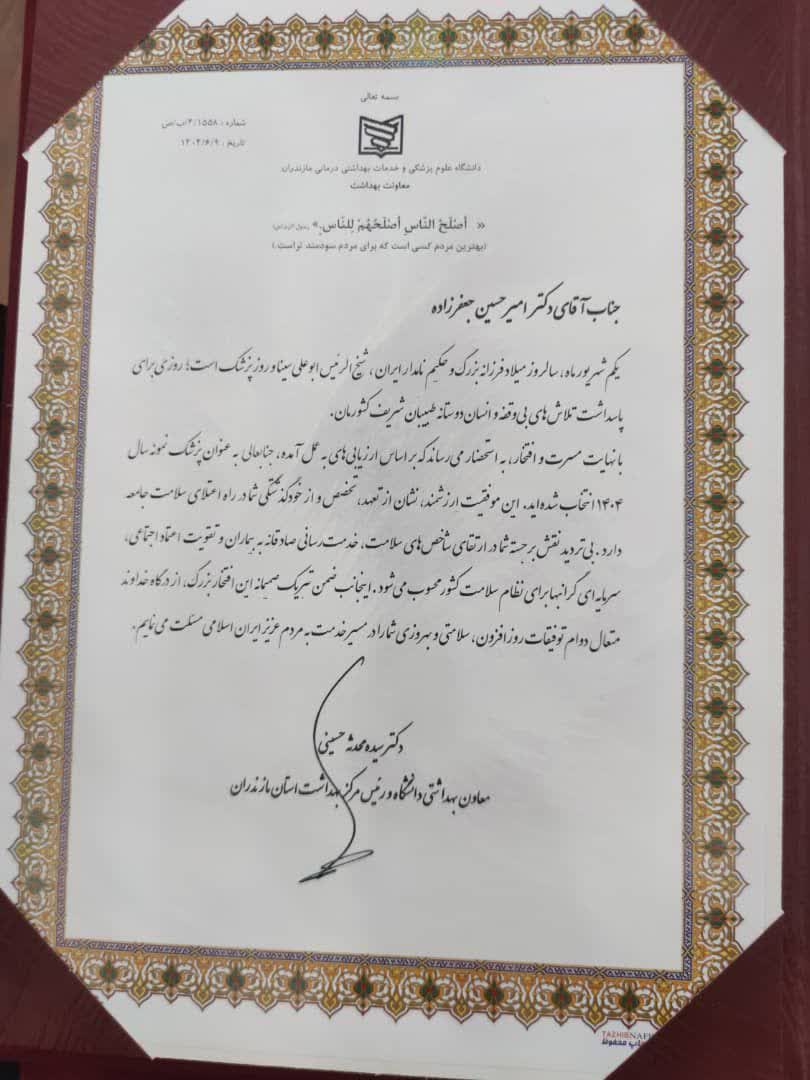 بسمه تعالی
شماره : ۴/۱۵۵۸/ب/ص
تاریخ : ۱۴۰۴/۶/۹
دانشگاه علوم پزشکی و خدمات بهداشتی درمانی مازندران
معاونت بهداشت
« أصْلَحُ النّاسِ أصْلَحُهُمْ لِلنّاسِ.»
(بهترین مردم کسی است که برای مردم سودمند تر است.)
جناب آقای دکتر امیر حسین جعفرزاده
یکم شهریور ماه، سالروز میلاد فرزانه بزرگ و حکیم نامدار ایران، شیخ الرئیس ابوعلی سینا و روز پزشک است؛ روزی برای
پاسداشت تلاش های بی وقفه و انسان دوستانه طبیبان شریف کشورمان.
با نهایت مسرت و افتخار، به استحضار می رساند که بر اساس ارزیابی های به عمل آمده، جنابعالی به عنوان پزشک نمونه سال
۱۴۰۴ انتخاب شده اید. این موفقیت ارزشمند، نشان از تعهد، تخصص و از خودگذشتگی شما در راه اعتلای سلامت جامعه
دارد. بی تردید نقش برجسته شما در ارتقای شاخص های سلامت، خدمت رسانی صادقانه به بیماران و تقویت اعتماد اجتماعی،
سرمایه ای گرانبها برای نظام سلامت کشور محسوب می شود. اینجانب ضمن تبریک صمیمانه این افتخار بزرگ، از درگاه خداوند
متعال دوام توفیقات روزافزون، سلامتی و بهروزی شما را در مسیر خدمت به مردم عزیز ایران اسلامی مسئلت می نمایم.
دکتر سیده محدثه حسینی
معاون بهداشتی دانشگاه و رئیس مرکز بهداشت استان مازندران